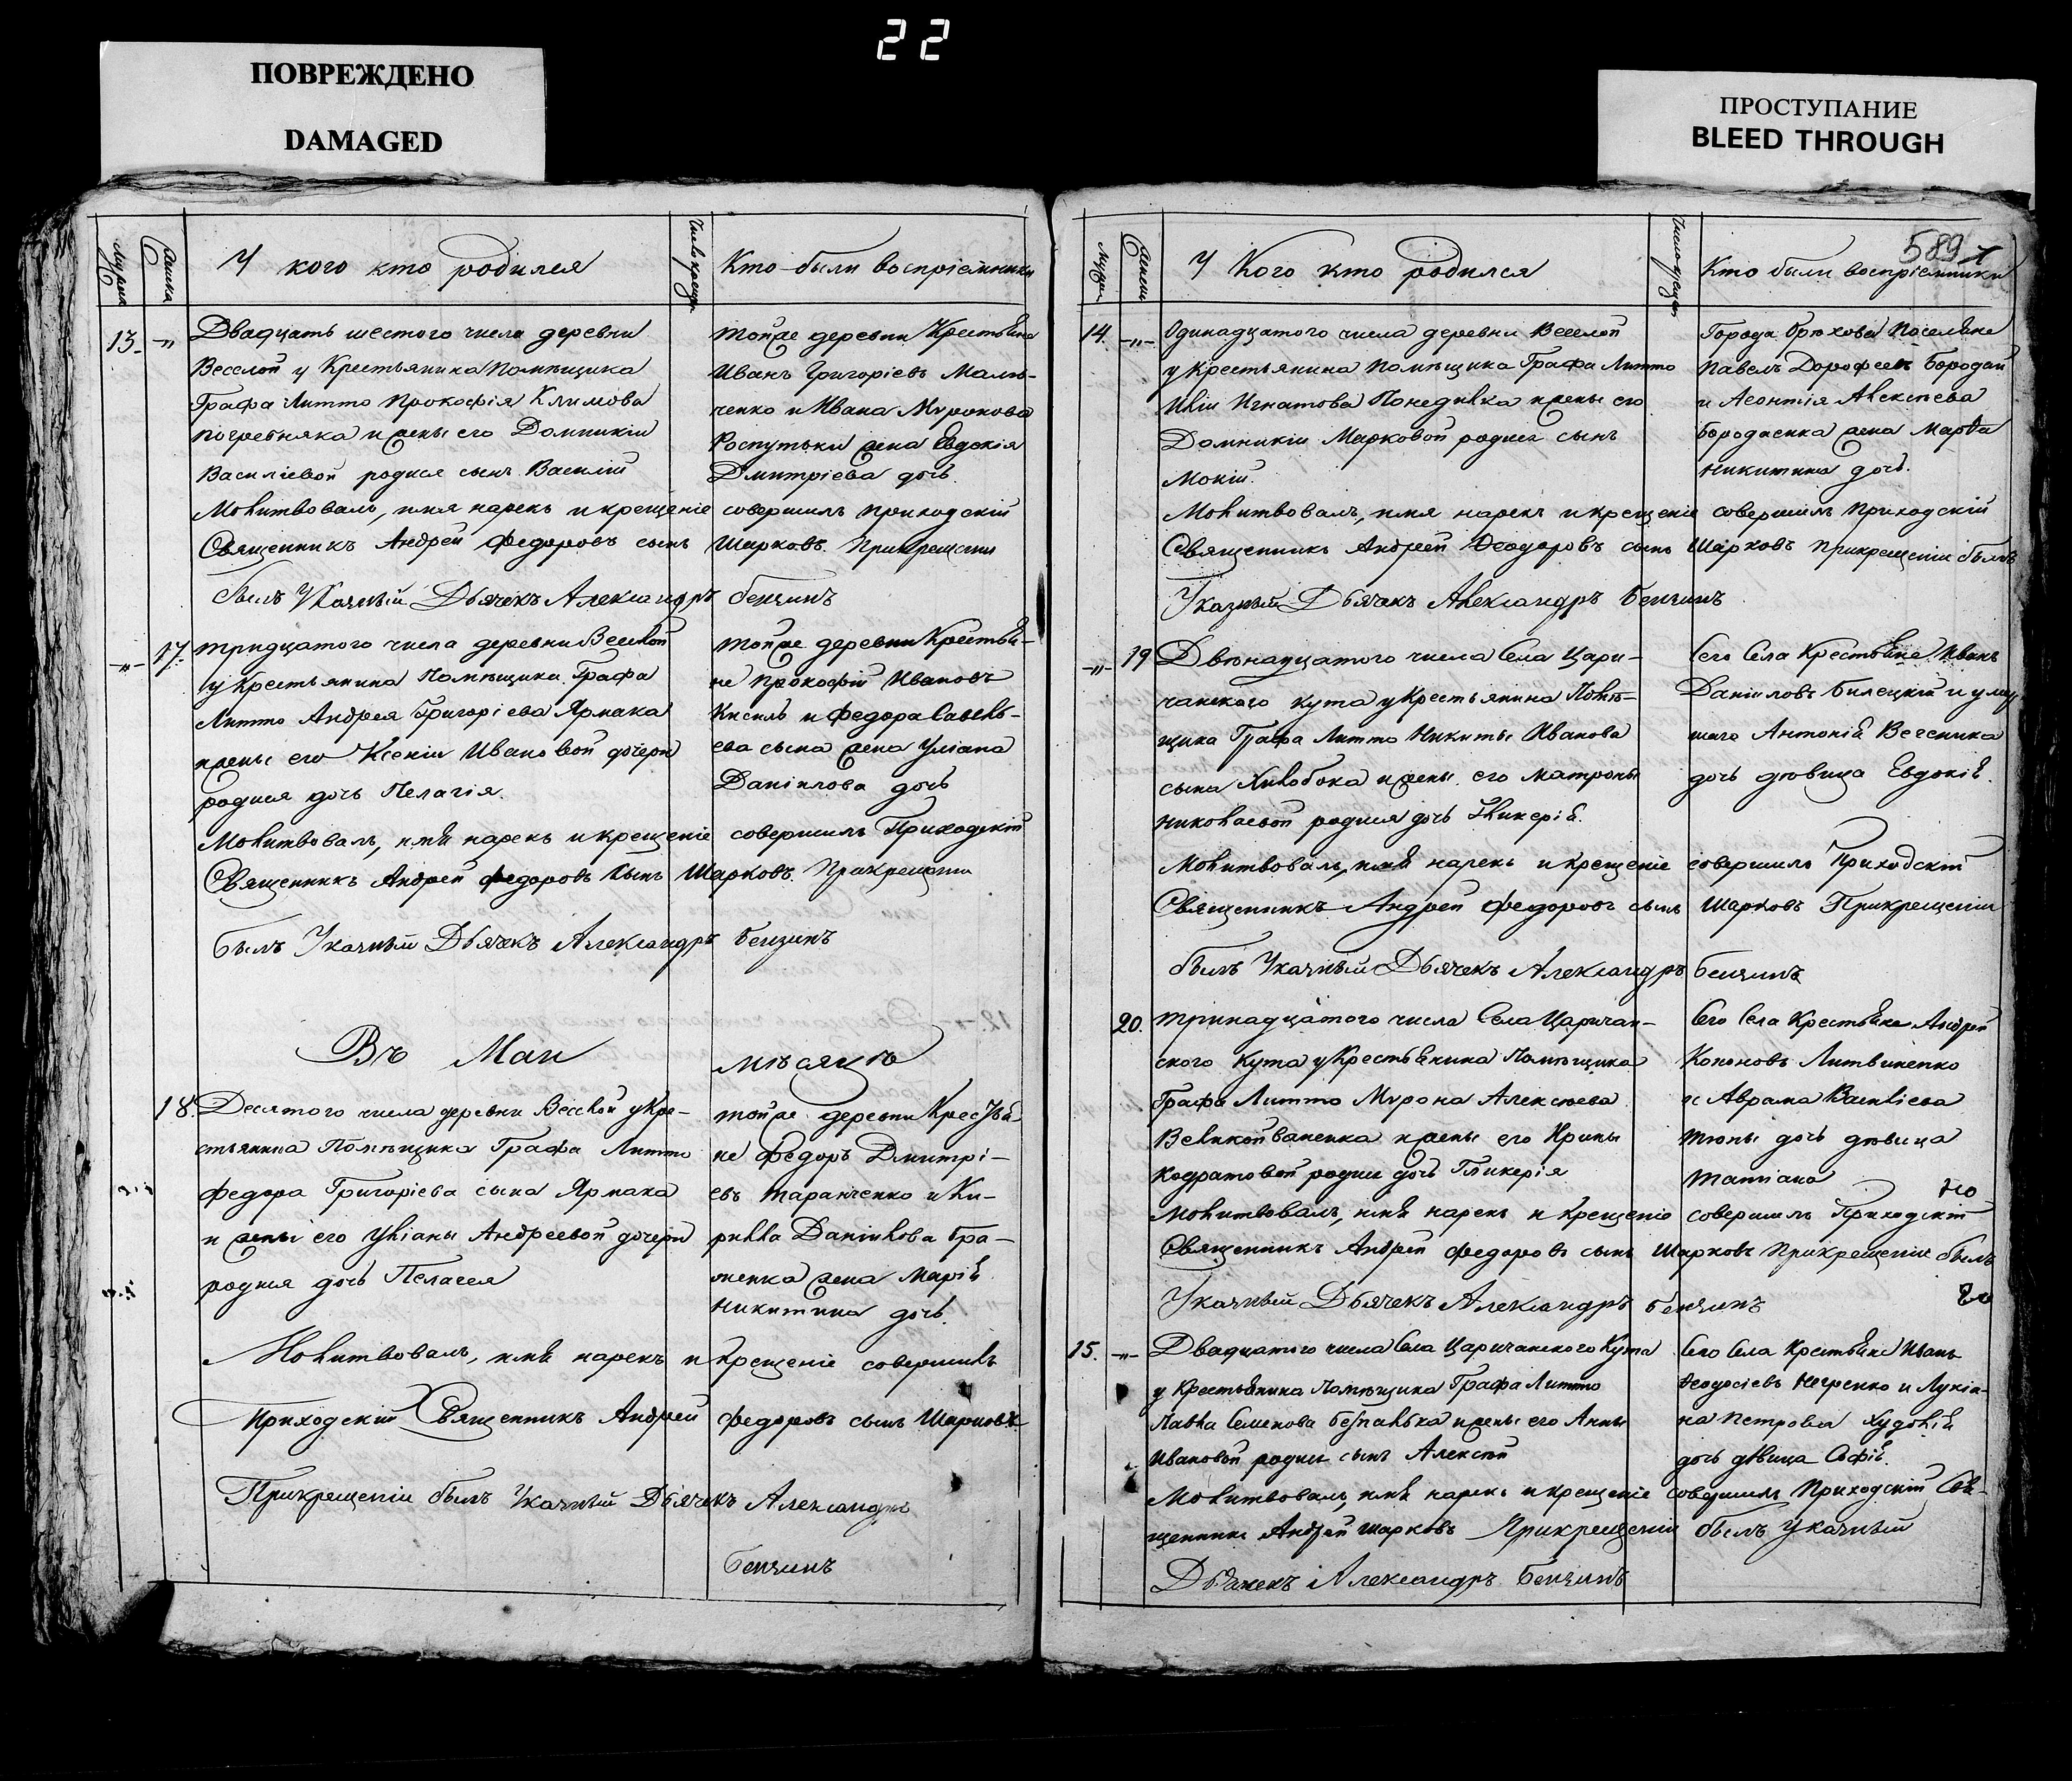 22
ПОВРЕЖДЕНО
DAMAGED
ПРОСТУПАНИЕ
BLEED THROUGH
У кого кто родился
Кто были воспріемники
13.
Двадцать шестого числа деревни
Веселой у Крестьянина Помѣщика
Графа Литто Прокофія Климова
погребняка и жены его Домникіи
Василіевой родися сынъ Василій
тойже деревни Крестьяне
Иванъ Григоріевъ Мали-
ченко и Ивана Миронова
Роспутьки жена Евдокія
Дмитріева дочь.
Молитвовалъ, имя нарекъ и крещеніе совершилъ приходскій
Священникъ Андрей Федоровъ сынъ Шарковъ. При крещеніи
былъ Указный Дьячекъ Александръ Бензинъ
17.
тридцатого числа деревни Веселой
у Крестьянина Помѣщика Графа
Литто Андрея Григоріева Ярмака
и жены его Ксеніи Ивановой дочери
родися дочь Пелагія.
тойже деревни Крестья-
не Прокофій Ивановъ
Кисиль и Федора Савель-
ева сына жена Уліана
Даніилова дочь
Молитвовалъ, имя нарекъ и крещеніе совершилъ Приходскій
Священникъ Андрей Федоровъ сынъ Шарковъ. При крещеніи
былъ Указный Дьячекъ Александръ Бензинъ
Въ Маи мѣсяцѣ
18.
Десятого числа деревни Веселой у Кре-
стьянина Помѣщика Графа Литто
Федора Григоріева сына Ярмака
и жены его Уліаны Андреевой дочери
родися дочь Пелагея
тойже деревни Крестья-
не Федоръ Дмитрі-
евъ Таранченко и Ки-
рилла Даніилова
жена Марія
Никитина дочь.
Молитвовалъ, имя нарекъ и крещеніе совершилъ
Приходскій Священникъ Андрей Федоровъ сынъ Шарковъ
При крещеніи былъ Указный Дьячекъ Александръ
Бензинъ
589
У Кого кто родился
Кто были воспріемники
14.
Одинадцатого числа деревни Веселой
у Крестьянина Помѣщика Графа Литто
Иліи Игнатова Понедилка и жены его
Домникіи Марковой родися сынъ
Мокій.
Города Орюхова Поселяне
Павелъ Дорофеевъ Бородай
и Леонтія Алексѣева
Бородаенка жена Марфа
Никитина дочь.
Молитвовалъ, имя нарекъ и крещеніе совершилъ Приходскій
Священникъ Андрей Феодоровъ сынъ Шарковъ При крещеніи былъ
Указный Дьячекъ Александръ Бензинъ
19
Двѣнадцатого числа Села Цари-
чанского Кута у Крестьянина Помѣ-
щика Графа Литто Никиты Иванова
сына Хилобока и жены его Матроны
Николаевой родися дочь Гликерія.
Сего Села Крестьяне Иванъ
Даніиловъ Билецкій и умер
шаго Антонія
дочь дѣвица Евдокія.
Молитвовалъ, имя нарекъ и крещеніе совершилъ Приходскій
Священникъ Андрей Федоровъ сынъ Шарковъ При крещеніи
былъ Указный Дьячекъ Александръ Бензинъ
20.
тринадцатого числа Села Царичан-
ского Кута у Крестьянина Помѣщика
Графа Литто Мирона Алексѣева
Великоиваненка и жены его Ирины
Кодратовой родися дочь Гликерія
Сего Села Крестьяне Андрей
Кононовъ Литвиненко
и Аврама Василіева
дочь дѣвица
Татіана
Молитвовалъ, имя нарекъ и крещеніе совершилъ Приходскій
Священникъ Андрей Федоровъ сынъ Шарковъ При крещеніи былъ
Указный Дьячекъ Александръ Бензинъ
15.
Двадцатого числа Села Царичанского Кута
у Крестьянина Помѣщика Графа Литто
Павла Семенова Безпалька и жены его Анны
Ивановой родися сынъ Алексѣй
Сего Села Крестьяне Иванъ
Феодосіевъ Негренко и Лукіа-
на Петрова Худолѣя
дочь дѣвица Софія.
Молитвовалъ, имя нарекъ и крещеніе совершилъ Приходскій Свя-
щенникъ Андрей Шарковъ При крещеніи былъ Указный
Дьячекъ Александръ Бензинъ